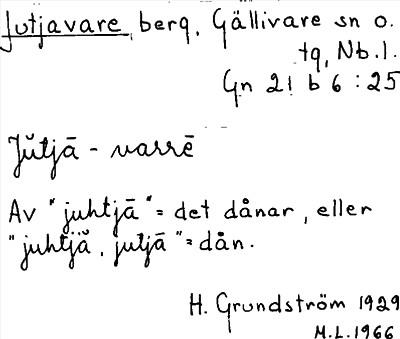 Jutjavare, berg, Gällivare sn o.
tg, Nb.l.
Gn 21 b 6 : 25
Jŭtjā - varrē
Av "juhtjā" = det dånar, eller
"juhtjā̆, jutjā" = dån.
H. Grundström 1929
M.L. 1966